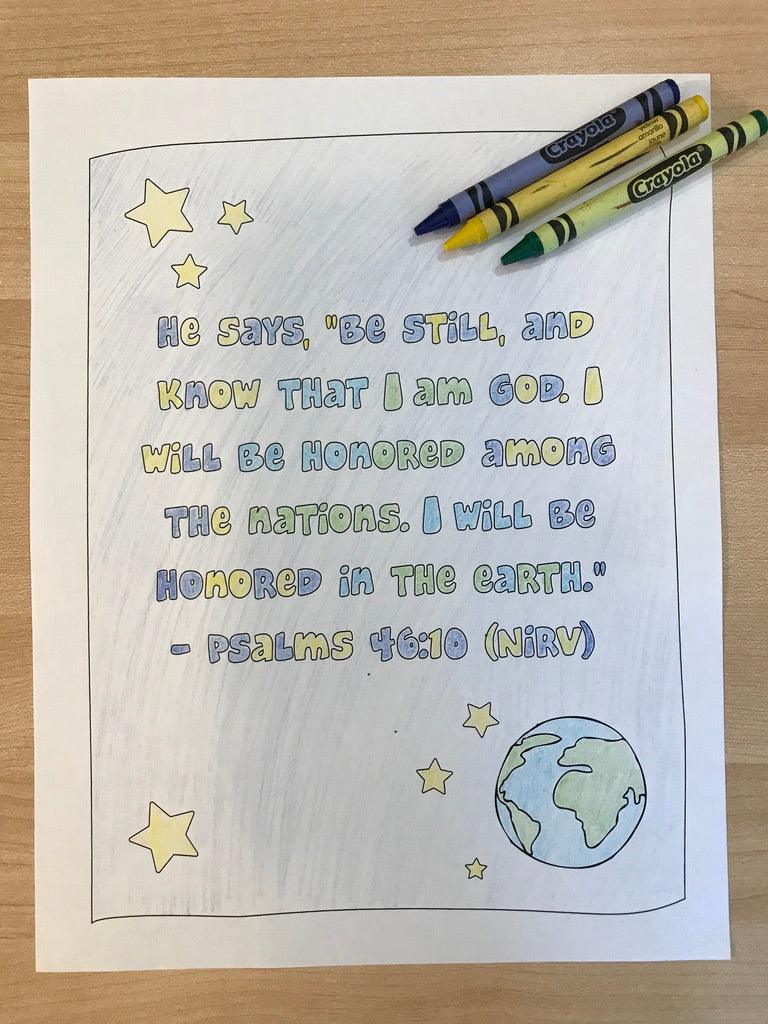 Crayola
Yellow
amarillo
jaune
Crayola®
He says, "Be still, and
know that I am God. I
will be honored among
the nations. I will be
honored in the earth."
- Psalms 46:10 (NIRV)